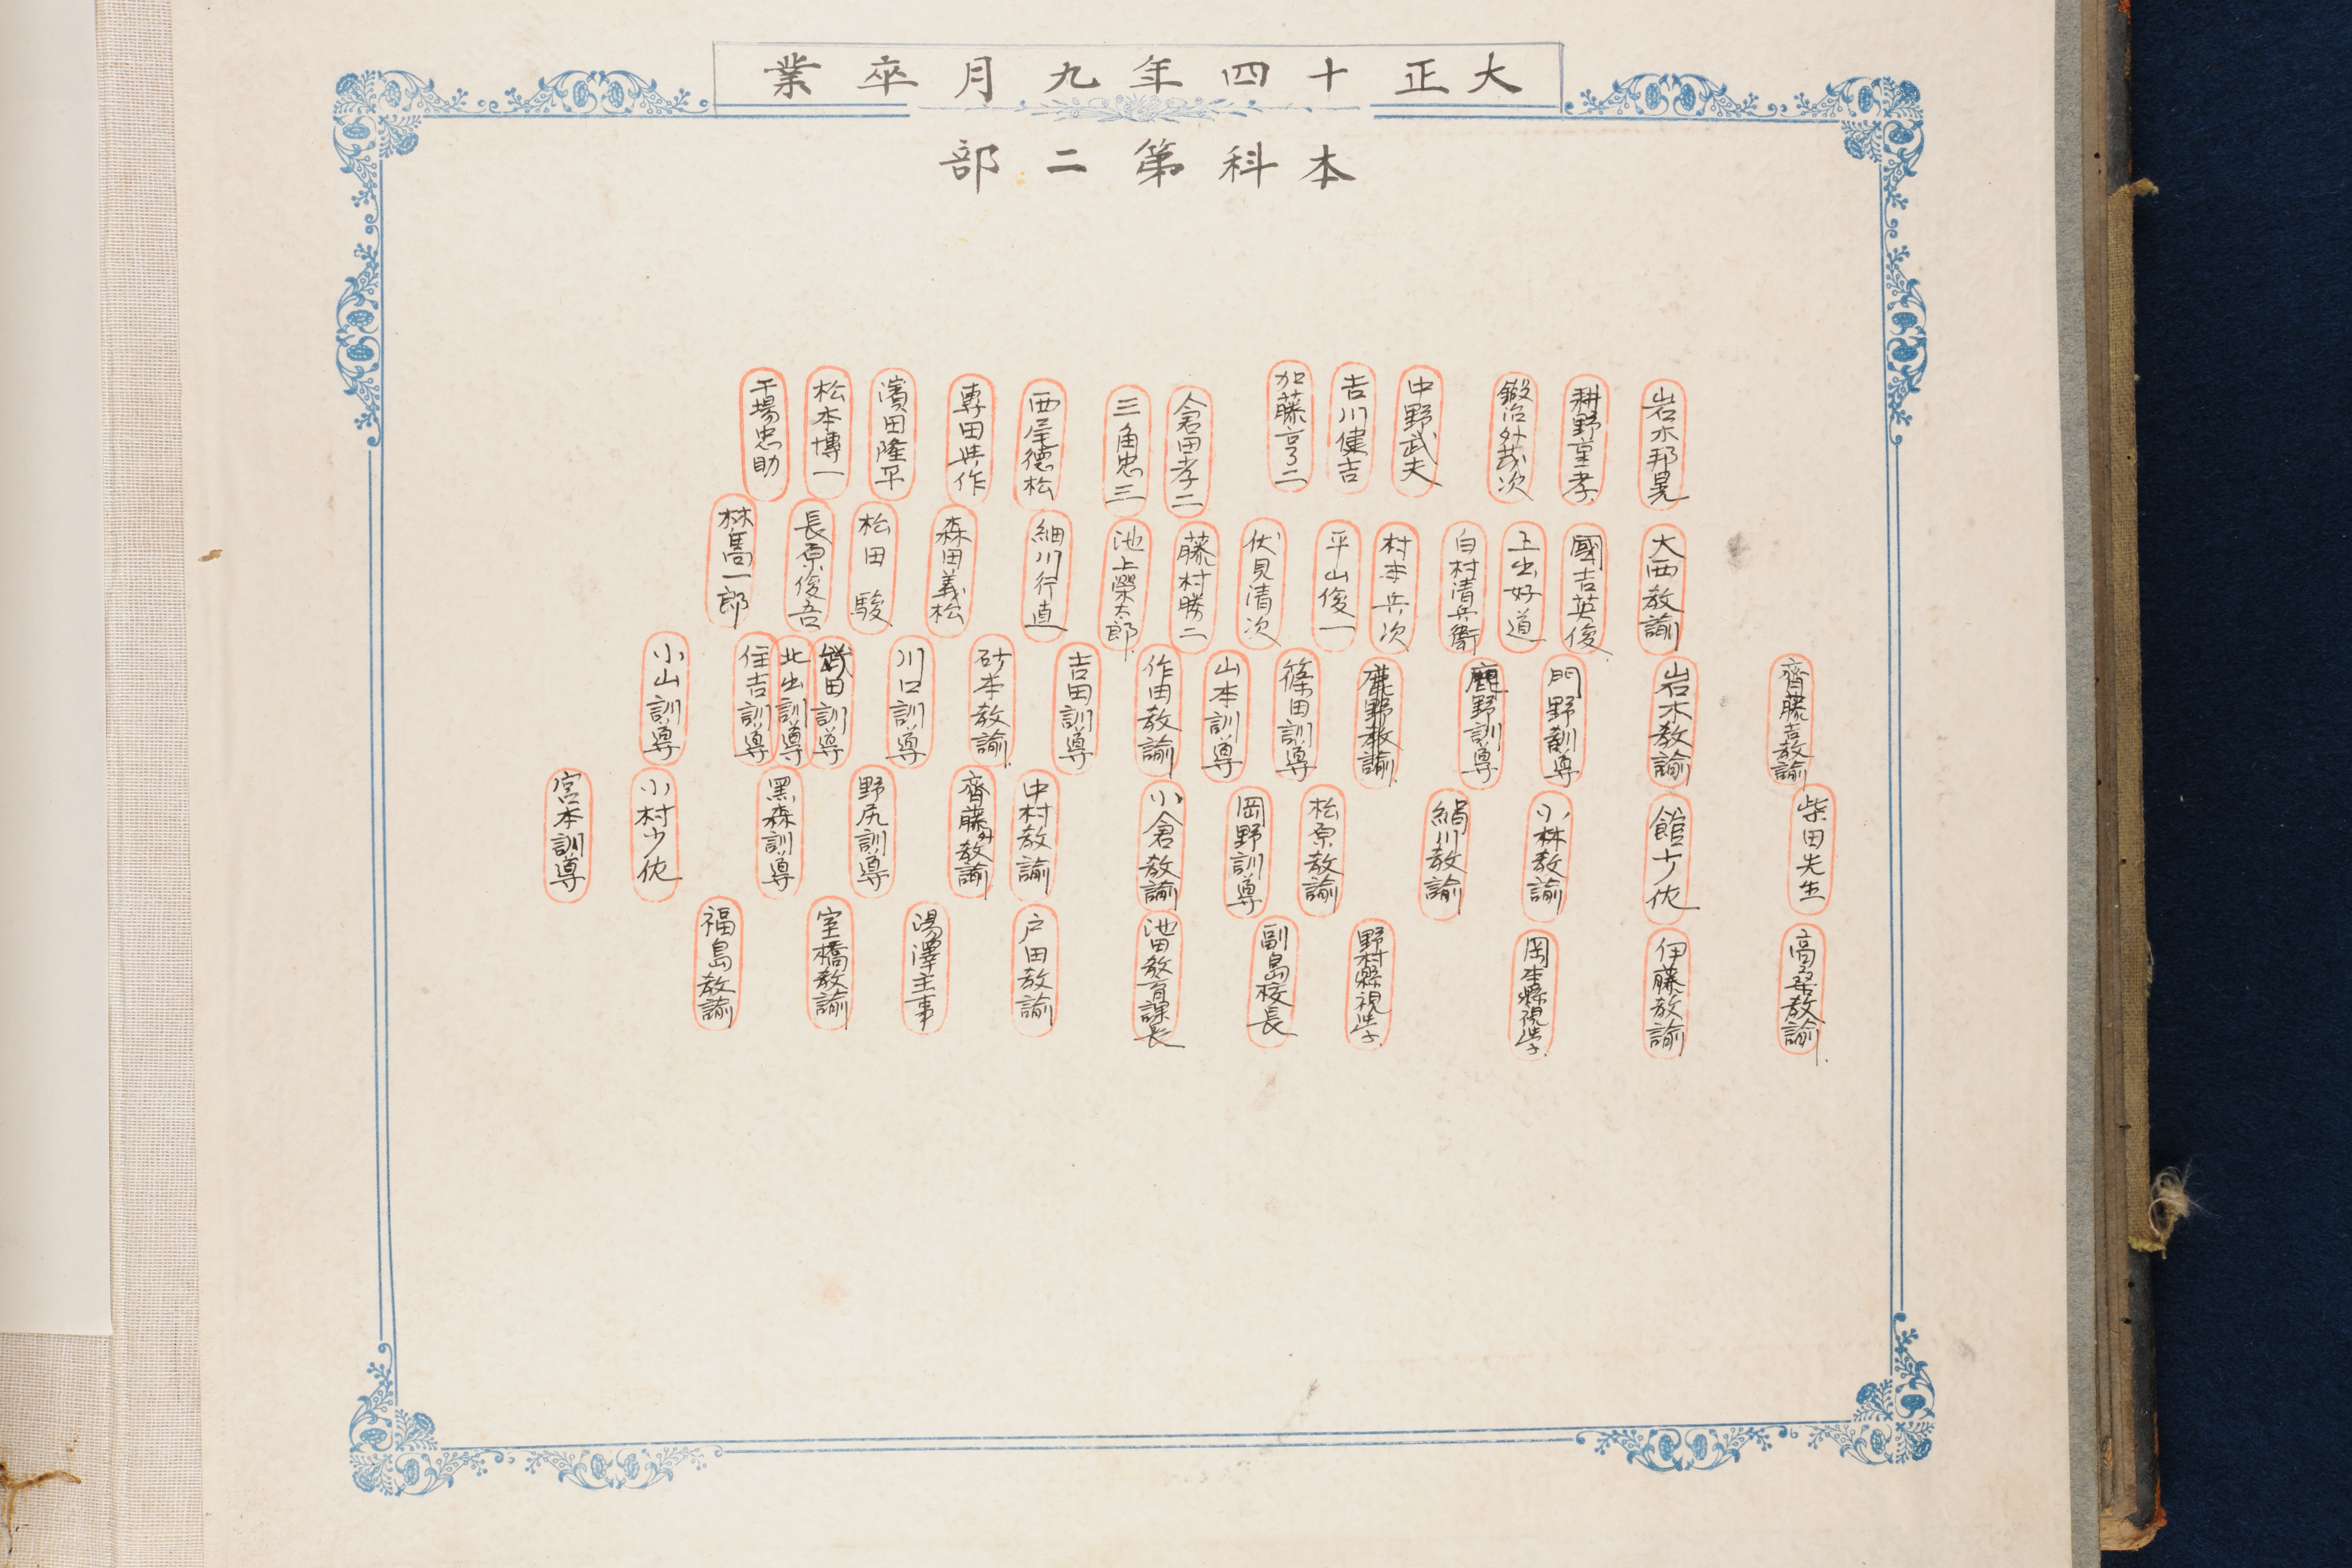 大正十四年九月卒業
本科第二部
岩木邦晃
耕野重孝
鍛冶外茂次
中野武夫
吉川健吉
加藤亨二
倉田孝二
三角忠三
西尾德松
専田與作
濱田隆平
松本博一
干場忠助
大西教諭
國吉英俊
上出好道
白村清兵衛
村本兵次
平山俊一
伏見清次
藤村勝二
池上榮太郎
細川行直
森田義松
松田駿
長原俊吾
林喬一郎
齊藤吉教諭
岩木教諭
門野訓導
鹿野訓導
鹿野教諭
篠田訓導
山本訓導
作田教諭
吉田訓導
砂本教諭
川口訓導
田訓導
北出訓導
住吉訓導
小山訓導
柴田先生
館少佐
小林教諭
絹川教諭
松原教諭
岡野訓導
小倉教諭
中村教諭
齊藤外教諭
野尻訓導
黒森訓導
小村少佐
宮本訓導
高桑教諭
伊藤教諭
岡本縣視学
野村縣視学
副島校長
池田教育課長
戸田教諭
湯澤主事
室橋教諭
福島教諭